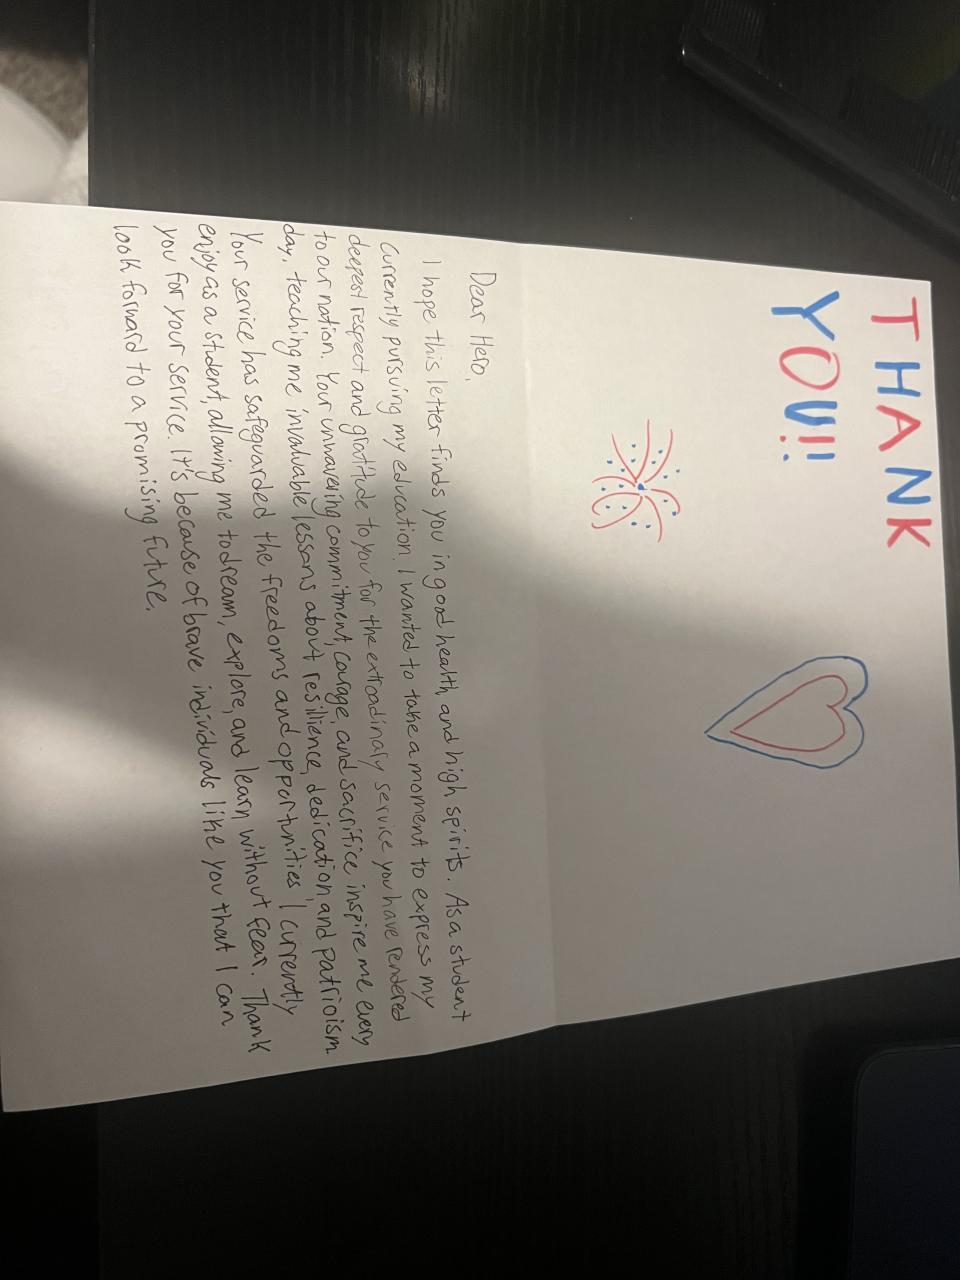 THANK
YOU!!
Dear Hero,
I hope this letter finds you in good health, and high spirits. As a student
currently pursuing my education, I wanted to take a moment to express my
deepest respect and gratitude to you for the extroadinary service you have rendered
to our nation. Your unwavering commitment, courage, and sacrifice inspire me every
day, teaching me invaluable lessons about resillience, dedication, and patrioism.
Your service has safeguarded the freedoms and opportunities I currently
enjoy as a student, allowing me to dream, explore, and learn without fear. Thank
you for your service. It's because of brave individuals like you that I can
look forward to a promising future.